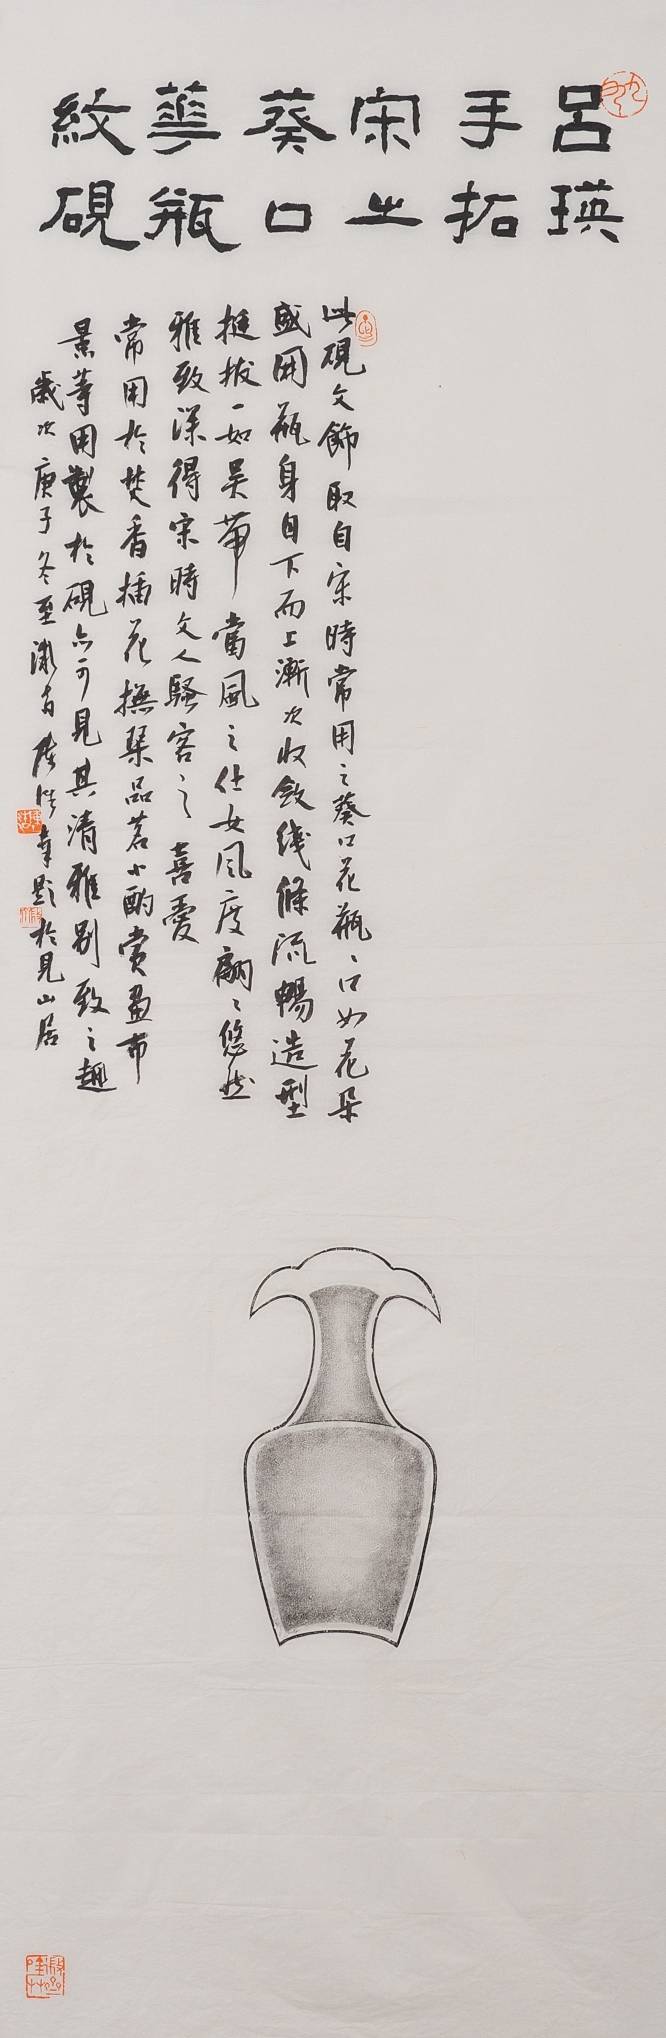 呂瑛
手拓
宋之
葵口
華瓶
紋硯
此硯文飾取自宋時常用之葵口花瓶、口如花朵
盛開瓶身自下而上漸次收斂线條流暢造型
挺拔一如吴带當風之仕女風度翩、悠然
雅致深得宋時文人騷客之喜愛
常用於焚香插花撫琴品茗小酌賞畫布
景等用製於硯亦可見其清雅别致之趣
歲次庚子冬至 題於見山居